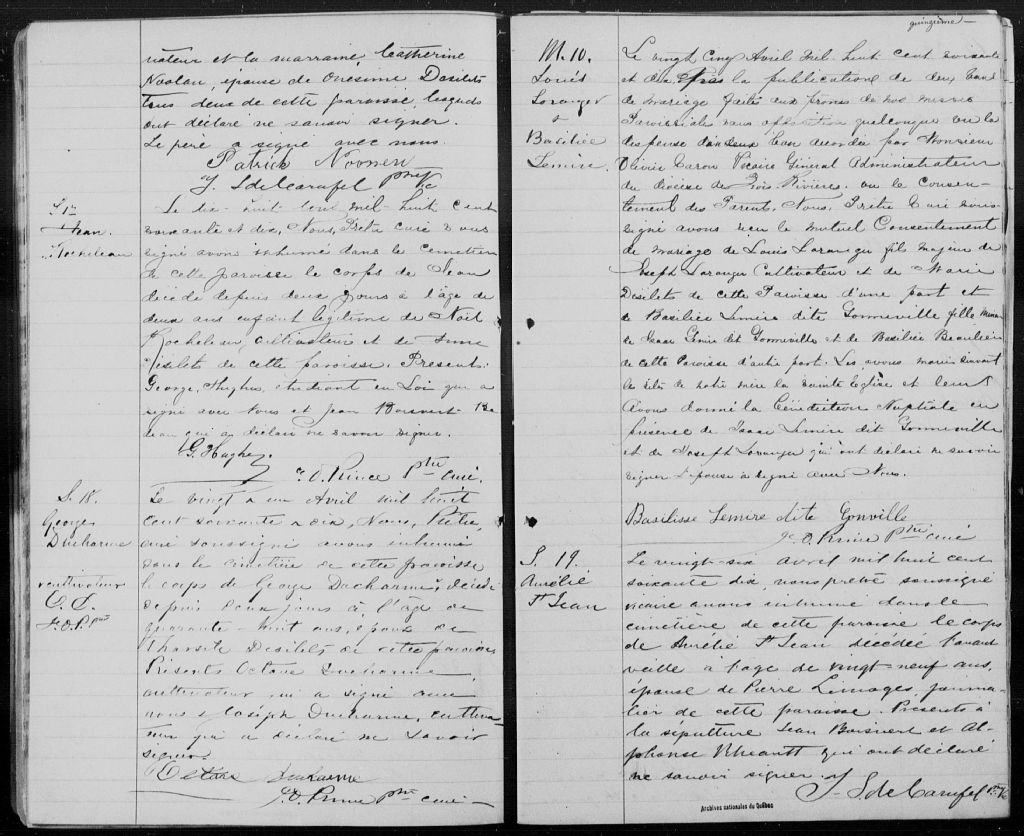 nateur et la marraine, Catherine
Noolan, épouse de Onesime Desilets
tous deux de cette paroisse, lesquels
ont déclaré ne savoir signer.
Le père a signé avec nous.
Patrick Noonen
J. S de Carufel Ptre Vic
S. 17
Jean
Rocheleau
Le dix-huit Avril mil-huit cent
soixante et dix, Nous, Prêtre curé sous
signé avons inhumé dans le cimetière
de cette paroisse le corps de Jean
décédé depuis deux jours à l'âge de
deux ans enfant légitime de Noël
Rocheleau, cultivateur et de
Desilets de cette paroisse. Présents:
George Hughes, étudiant en Loi qui a
signé avec Nous et Jean Boisvert Be
deau qui a déclaré ne savoir signer.
G. Hughes
J. O. Prince Ptre Curé.
S. 18.
George
Ducharme
cultivateur
J. O. P. Ptre
Le vingt & un Avril mil huit
cent soixante & dix, Nous, Prêtre,
curé soussigné avons inhumé
dans le cimetière de cette paroisse
le corps de George Ducharme, décédé
depuis deux jours à l'âge de
quarante huit ans, époux de
Tharsile Desilets de cette paroisse
Présents Octave Ducharme,
cultivateur qui a signé avec
nous & Joseph Ducharme, cultiva-
teur qui a déclaré ne savoir
signer.
Octave Ducharme
J. O. Prince Ptre curé
quinzième
M. 10.
Louis
Loranger
&
Basilice
Lemire.
Le vingt cinq Avril mil huit cent soixante
et dix, après la publication de deux bans
de mariage faite aux prônes de nos messes
Paroissiales sans opposition quelconque vu la
dispense d'un seul ban accordée par Monsieur
Olivier Caron Vicaire Général Administrateur
du diocèse des Trois-Rivières, vu le consen-
tement des Parents, Nous, Prêtre Curé sous-
signé avons reçu le mutuel Consentement
de mariage de Louis Loranger fils majeur de
Joseph Loranger Cultivateur et de Marie
Desilets de cette Paroisse d'une part et
de Basilice Lemire dite Gonneville fille mineure
de Isaac Lemire dit Gonneville et de Basilice Beaulieu
de cette Paroisse d'autre part. Les avons mariés suivant
les rits de notre mère la Sainte Eglise et leur
avons donné la Bénédiction Nuptiale en
présence de Isaac Lemire dit Gonneville
et de Joseph Loranger qui ont déclaré ne savoir
signer L'épouse a signé avec Nous.
Basilisse Lemire dite Gonville
J. O. Prince Ptre curé
S. 19.
Aurélie
St Jean
Le vingt-six avril mil huit cent
soixante dix, nous prêtre soussigné
vicaire avons inhumé dans le
cimetière de cette paroisse le corps
de Aurélie St Jean décédée l'avant
veille à l'âge de vingt neuf ans,
épouse de Pierre Limoges, journa-
lier de cette paroisse. Présents à
la sépulture Jean Boisvert et Al-
phonse Rheault qui ont déclaré
ne savoir signer. J. S de Carufel Ptre Vic
Archives nationales du Québec